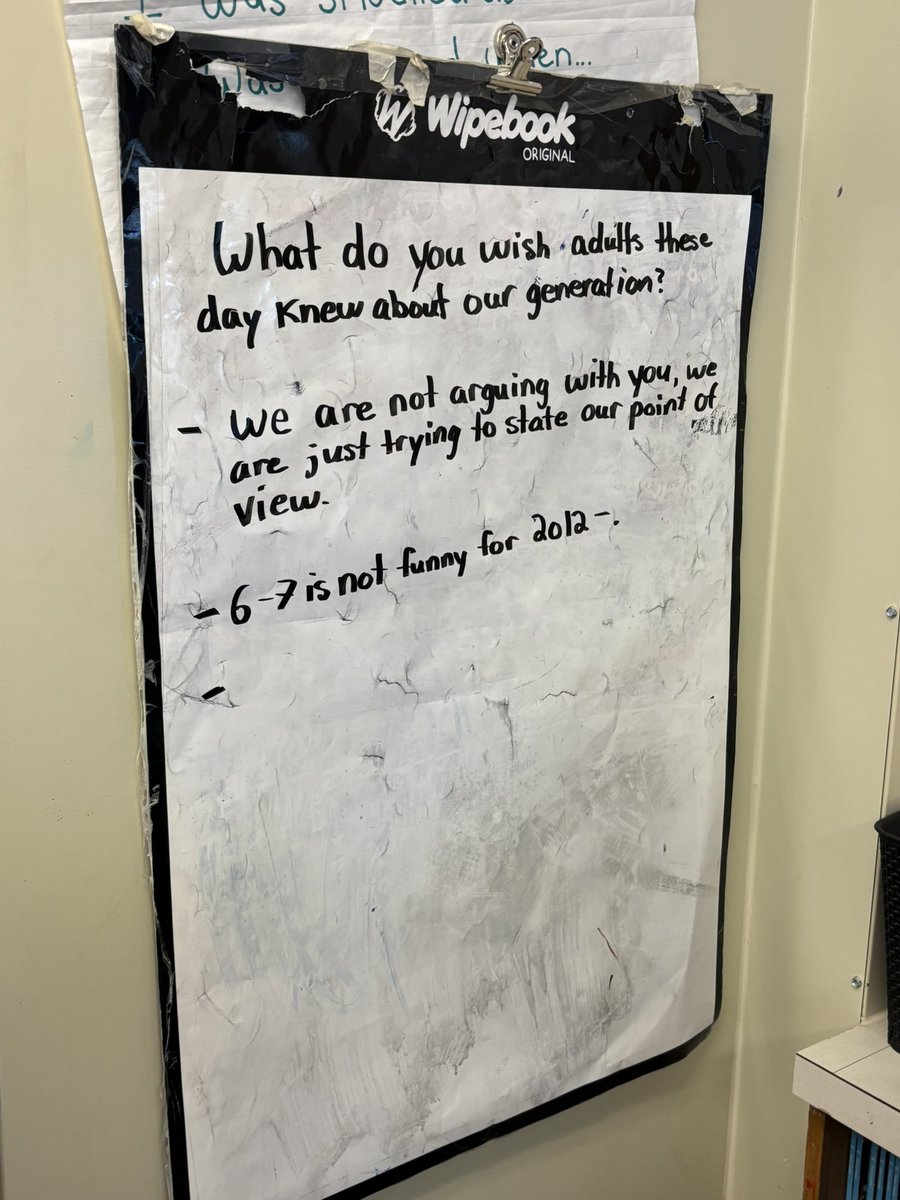 I was
Was
en...
Wipebook
ORIGINAL
What do you wish adults these
day knew about our generation?
- we are not arguing with you, we
are just trying to state our point of
view.
- 6-7 is not funny for 2012-.
-